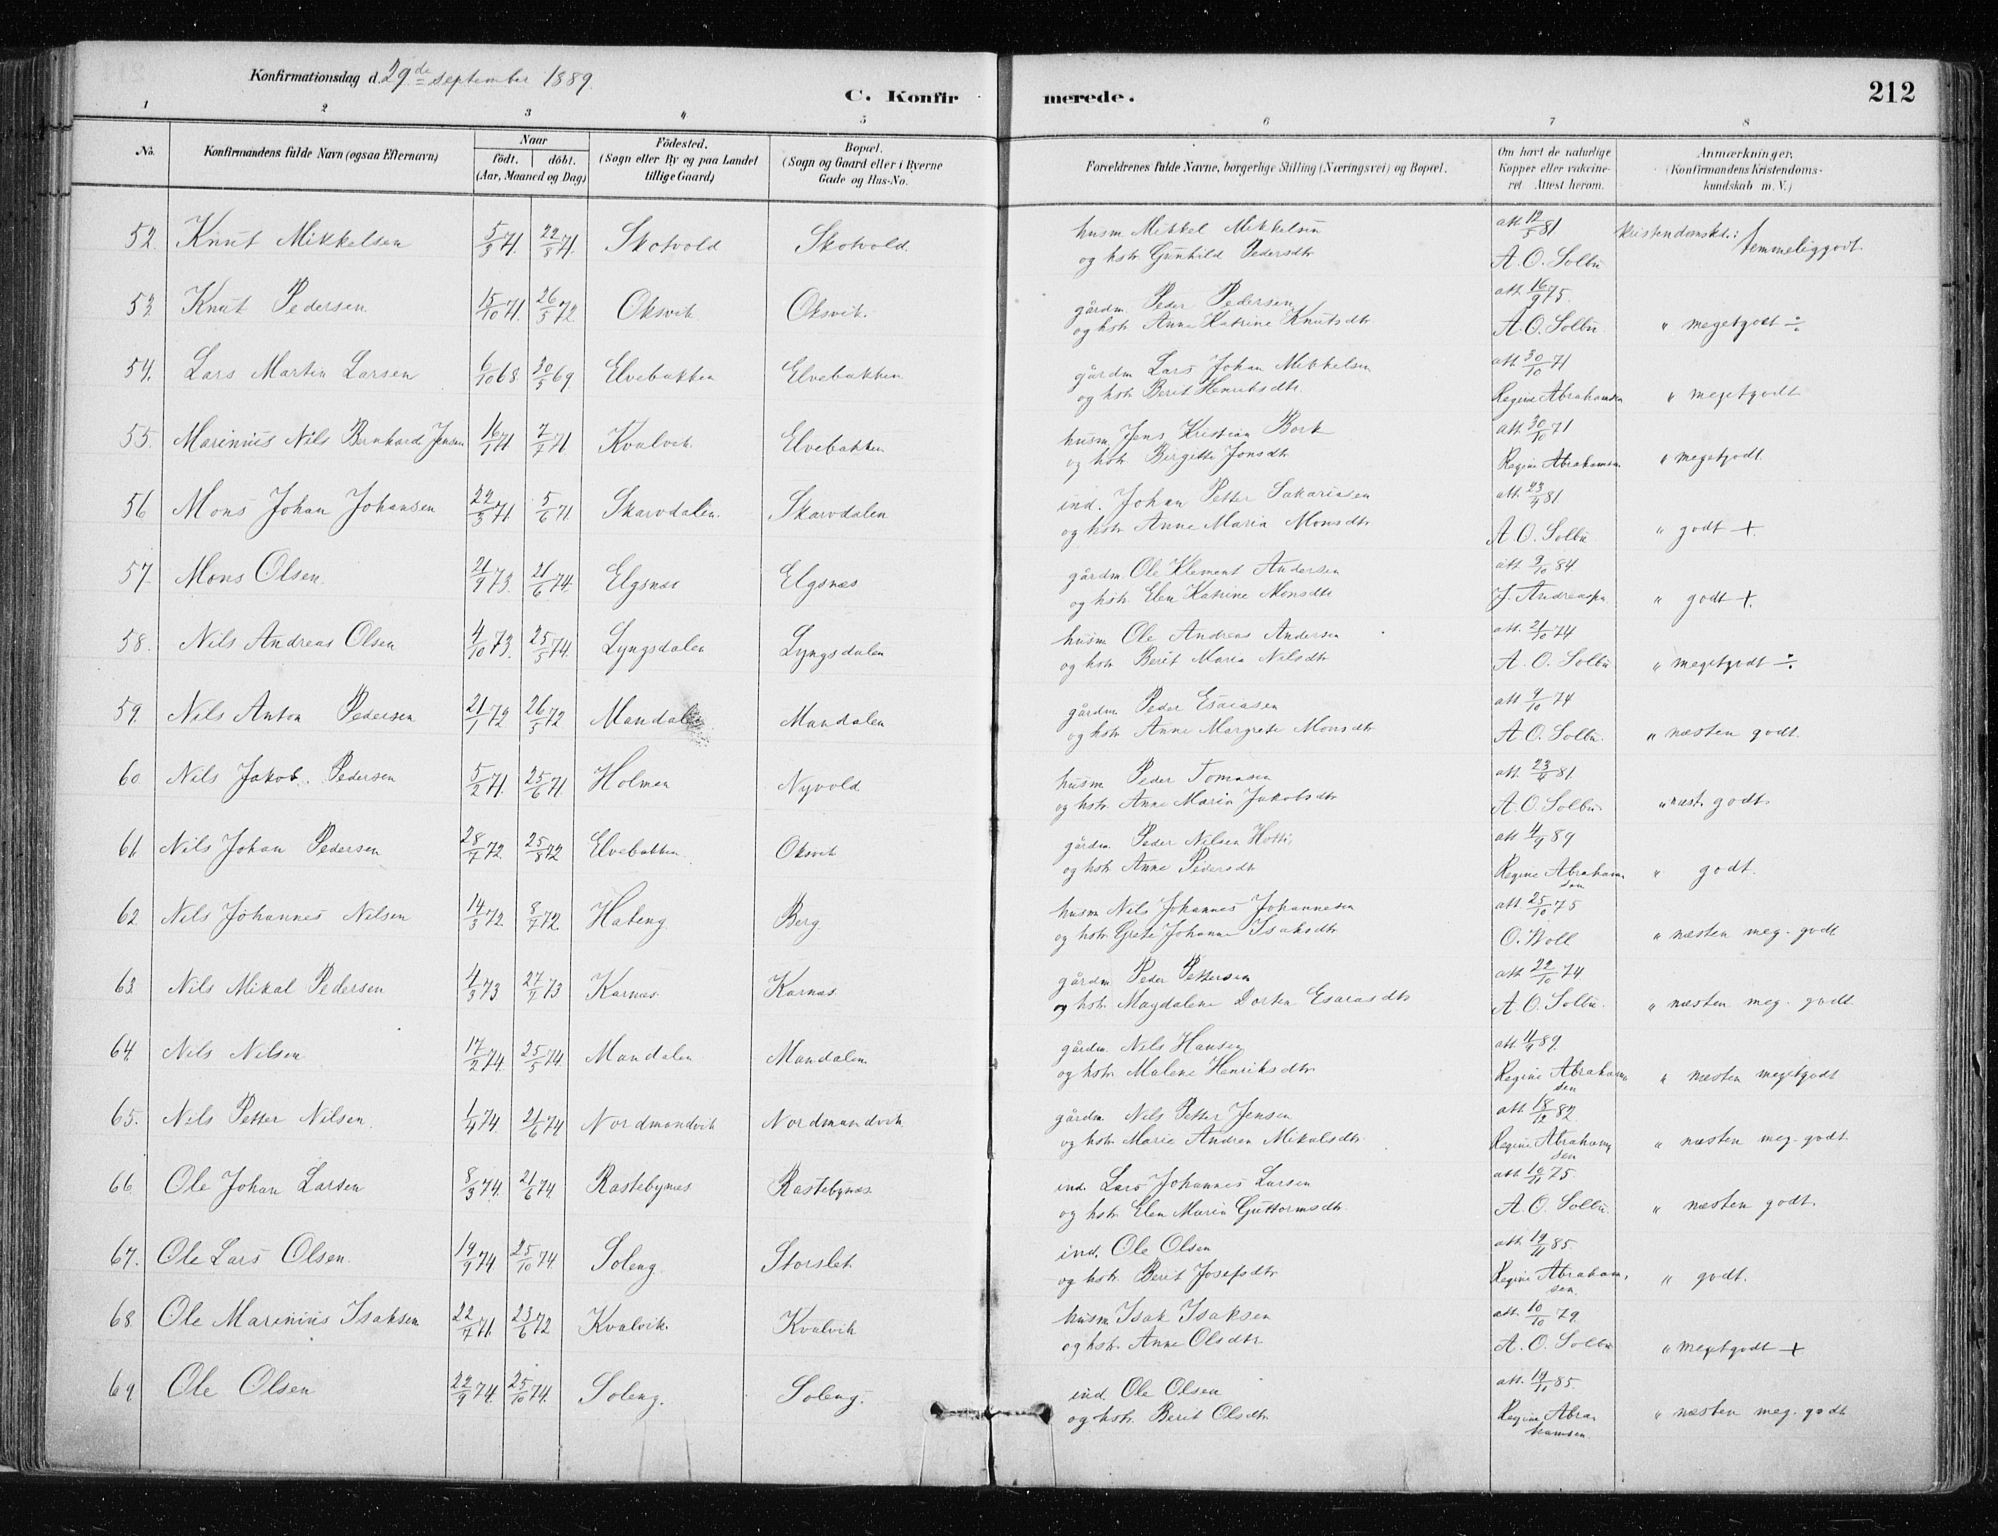 Konfirmationsdag d. 29de september 1889.
C. Konfirmerede.
212
1 2 3 4 5 6 7 8
No. Konfirmandens fulde Navn (ogsaa Efternavn) Naar födt. döbt. (Aar, Maaned og Dag) Födested. (Sogn eller By og paa Landet tillige Gaard) Bopæl. (Sogn og Gaard eller i Byerne Gade og Hus-No. Forældrenes fulde Navne, borgerlige Stilling (Næringsvei) og Bopæl. Om havt de naturlige Kopper eller vakcineret. Attest herom. Anmærkninger. (Konfirmandens Kristendomskundskab m. V.)
52. Knut Mikkelsen 5/3 71. 22/5 71. Skotvold Skotvold. husm Mikkel Mikkelsen att 12/5 81 Kristendomskd.: temmelig godt.
og hstr Gunhild Pedersdtr A. O. Solbu
53. Knut Pedersen 15/10 71. 26/5 72 Oksvik Oksvik. gårdm. Peder Pedersen att 16/9 75.
og hstr Anne Katrine Knutsdtr A. O. Solbu " megetgodt ÷
54. Lars Martin Larsen 6/10 68 20/5 69 Elvebakken Elvebakken gårdm Lars Johan Mikkelsen att 30/10 71
og hstr Berit Henriksdtr Regine Abrahamsen " megetgodt
55. Marinius Nils Bernhard Jensen 16/1 71 7/7 71 Kvalvik Elvebakken husm. Jens Kristian Bork att 30/10 71
og hstr Bergitte Jonsdtr Regine Abrahamsen " megetgodt
56 Mons Johan Johansen 22/3 71 5/6 71 Skarvdalen. Skarvdalen ind. Johan Petter Sakariasen att 23/4 81
og hstr Anne Maria Monsdtr A. O. Solbu " godt +
57. Mons Olsen. 21/9 73. 21/6 74. Elgsnæs Elgsnæs gårdm. Ole Klement Andersen att 9/10 84
og hstr. Elen Katrine Monsdtr J. Andreassen " godt +.
58. Nils Andreas Olsen 4/10 73. 25/5 74. Lyngsdalen Lyngsdalen husm Ole Andreas Andersen att. 21/10 74
og hstr Berit Maria Nilsdtr A. O. Solbu " megetgodt ÷
59. Nils Anton Pedersen 21/1 72 26/5 72 Mandalen Mandalen gårdm Peder Esaiasen att 9/10 74
og hstr. Anne Margrete Monsdtr A. O. Solbu. " næsten godt.
60 Nils Jakob. Pedersen 5/2 71. 25/6 71 Holmen Nyvold husm Peder Tomasen att 23/4 81.
og hstr. Anne Maria Jakobsdtr A. O. Solbu " næst. godt.
61. Nils Johan Pedersen 28/7 72 25/8 72 Elvebakken Oksvik gårdm Peder Nilsen Hotti, att 4/9 89
og hstr Anne Pedersdtr Regine Abrahamsen " godt.
62. Nils Johannes Nilsen 14/3 72. 8/7 72. Hateng Berg husm Nils Johannes Johannesen att. 25/10 75
og hstr Grete Johanne Isaksdtr O. Woll " næsten meg. godt
63. Nils Mikal Pedersen 4/3 73 27/7 73 Karnæs. Karnæs gårdm Peder Pettersen att 22/10 74
og hstr Magdalene Dorten Esaiasdtr A. O. Solbu. " næsten meg. godt
64. Nils Nilsen 17/2 74. 25/5 74. Mandalen Mandalen gårdm. Nils Hansen att. 4/9 89.
og hstr Malene Henriksdtr Regine Abrahamsen " næsten megetgodt
65. Nils Petter Nilsen. 1/4 74. 21/6 74 Nordmandvik Nordmandvik gårdm Nils Petter Jensen att 18/12 82
og hstr Marie Andrea Mikalsdtr Regine Abrahamsen " næsten meg. godt.
66. Ole Johan Larsen 8/3 74. 21/6 74. Rastebynæs Rastebynæs. ind. Lars Johannes Larsen att 10/11 75.
og hstr. Elen Maria Guttormsdtr A. O. Solbu. " næsten godt.
67. Ole Lars Olsen. 19/9 74 25/10 74 Soleng. Storslet. ind. Ole Olsen att. 19/11 85.
og hstr Berit Josefsdtr Regine Abrahamsen. " godt.
68. Ole Marinius Isaksen 22/7 71. 23/6 72 Kvalvik. Kvalvik husm Isak Isaksen att 10/10 79
og hstr. Anne Olsdtr A. O. Solbu " megetgodt +
69. Ole Olsen 22/9 74. 25/10 74. Soleng. Soleng. ind. Ole Olsen att. 19/11 85.
og hstr Berit Olsdtr Regine Abrahamsen " næsten meg. godt